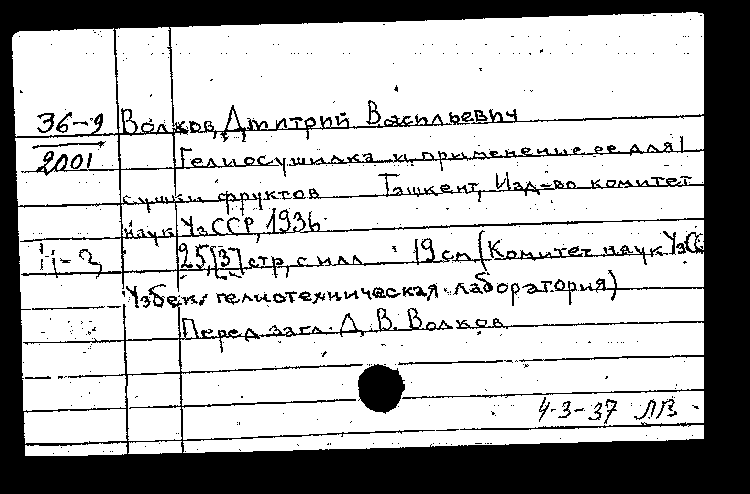 36-9 Волков, Дмитрий Васильевич
2001 Гелиосушилка и применение ее для
сушки фруктов Ташкент, Изд-во комитет
наук УзССР, 1936.
25,[3] стр, с илл 19 см (Комитет наук УзСС
Узбек. гелиотехническая лаборатория)
Перед загл. Д. В. Волков
4-3-37 ЛВ